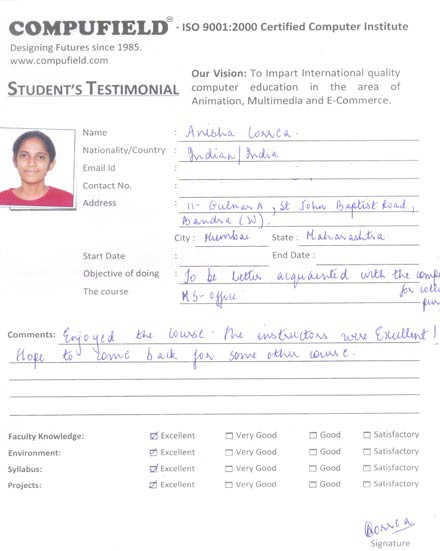 COMPUFIELD® - ISO 9001:2000 Certified Computer Institute
Designing Futures since 1985.
www.compufield.com
Our Vision: To Impart International quality
computer education in the area of
Animation, Multimedia and E-Commerce.
STUDENT'S TESTIMONIAL
Name : Anisha Correa.
Nationality/Country : Indian/India
Email Id :
Contact No. :
Address : 11- Gulnar A, St John Baptist Road,
Bandra (W).
City : Mumbai State : Maharashtra.
Start Date : End Date :
Objective of doing : To be better acquainted with the comp
The course MS-office for
Comments: Enjoyed the course. The instructors were Excellent!
Hope to come back for some other course.
Faculty Knowledge: Excellent Very Good Good Satisfactory
Environment: Excellent Very Good Good Satisfactory
Syllabus: Excellent Very Good Good Satisfactory
Projects: Excellent Very Good Good Satisfactory
Correa
Signature